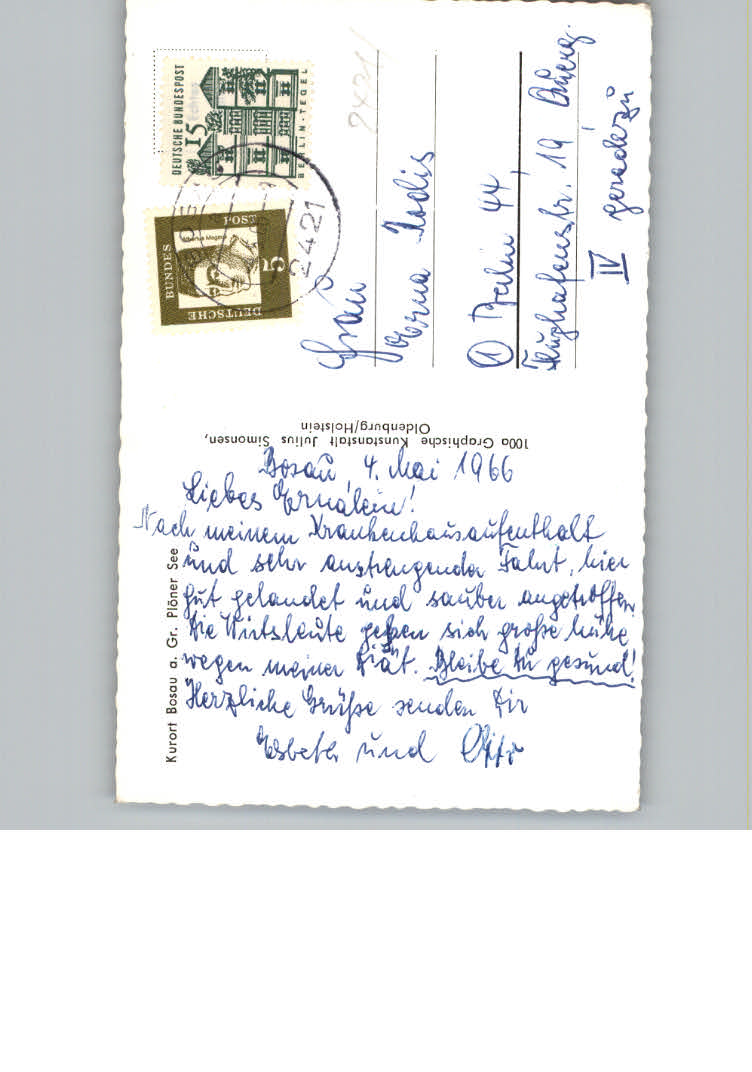 Bosau, 4. Mai 1966
Liebes Ernalein!
Nach meinem Krankenhausaufenthalt
und sehr anstrengender Fahrt, hier
gut gelandet und sauber angetroffen.
Die Wirtsleute geben sich große Mühe
wegen meiner Diät. Bleibe Du gesund!
Herzliche Grüße senden Dir
und Otto
Kurort Bosau a. Gr. Plöner See
100a Graphische Kunstanstalt Julius Simonsen,
Oldenburg/Holstein
Frau
Erna
1 Berlin 44,
Flughafenstr. 19
IV geradezu
DEUTSCHE BUNDESPOST
15
BERLIN-TEGEL
DEUTSCHE
BUNDES
POST
5
2421